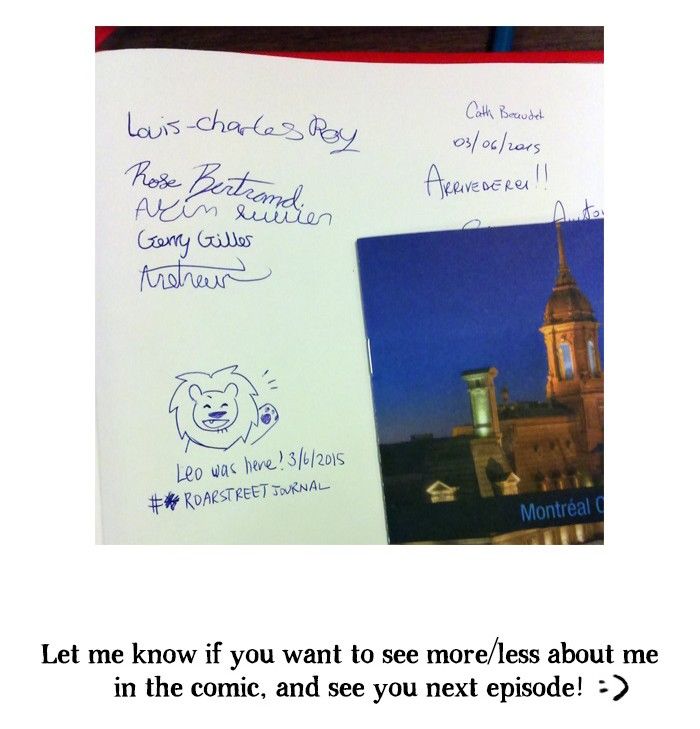 Louis-Charles Roy
Rose Bertrand
Gerry Gilles
Cath Beaudet
03/06/2015
ARRIVEDERCI!!
Leo was here! 3/6/2015
# ROARSTREETJOURNAL
Montréal C
Let me know if you want to see more/less about me
in the comic, and see you next episode! :-)